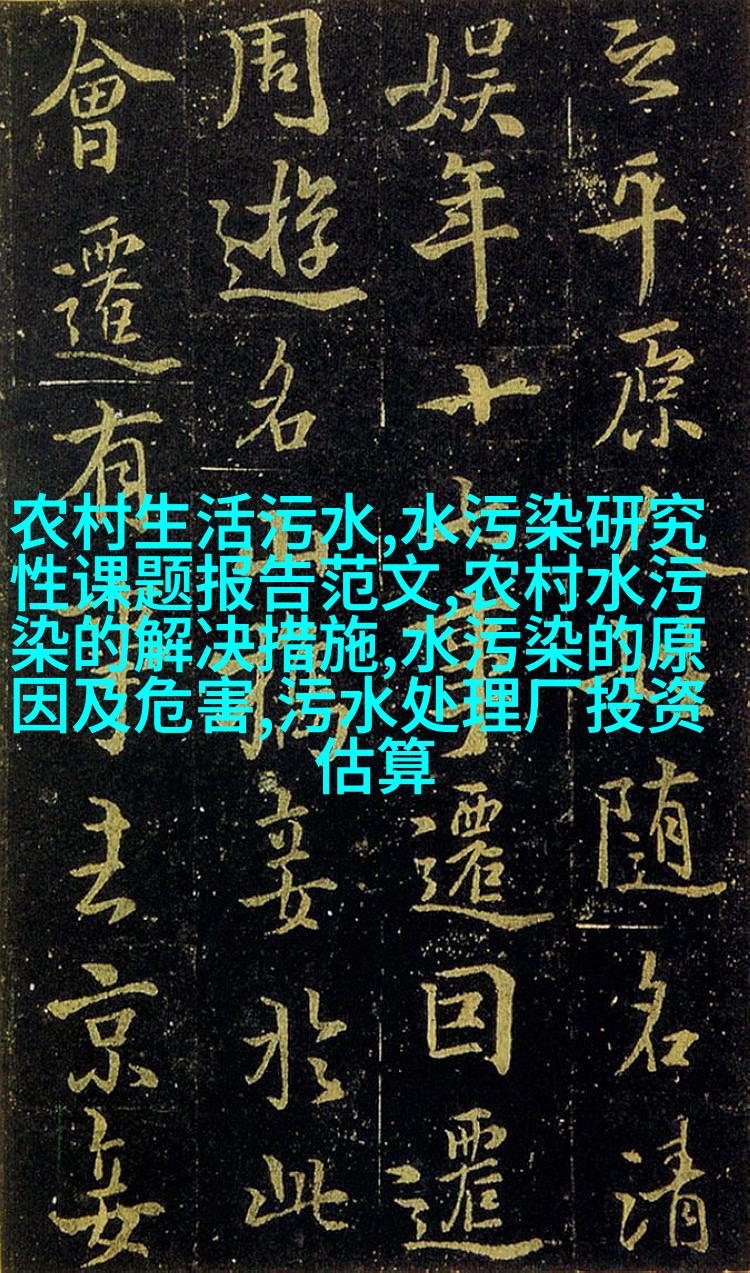 农村生活污水,水污染研究
性课题报告范文,农村水污
染的解决措施,水污染的原
因及危害,污水处理厂投资
估算
之平原人随名清
娱年十七事遷回遷
周遊名山妾於此
會遷有事去京妾